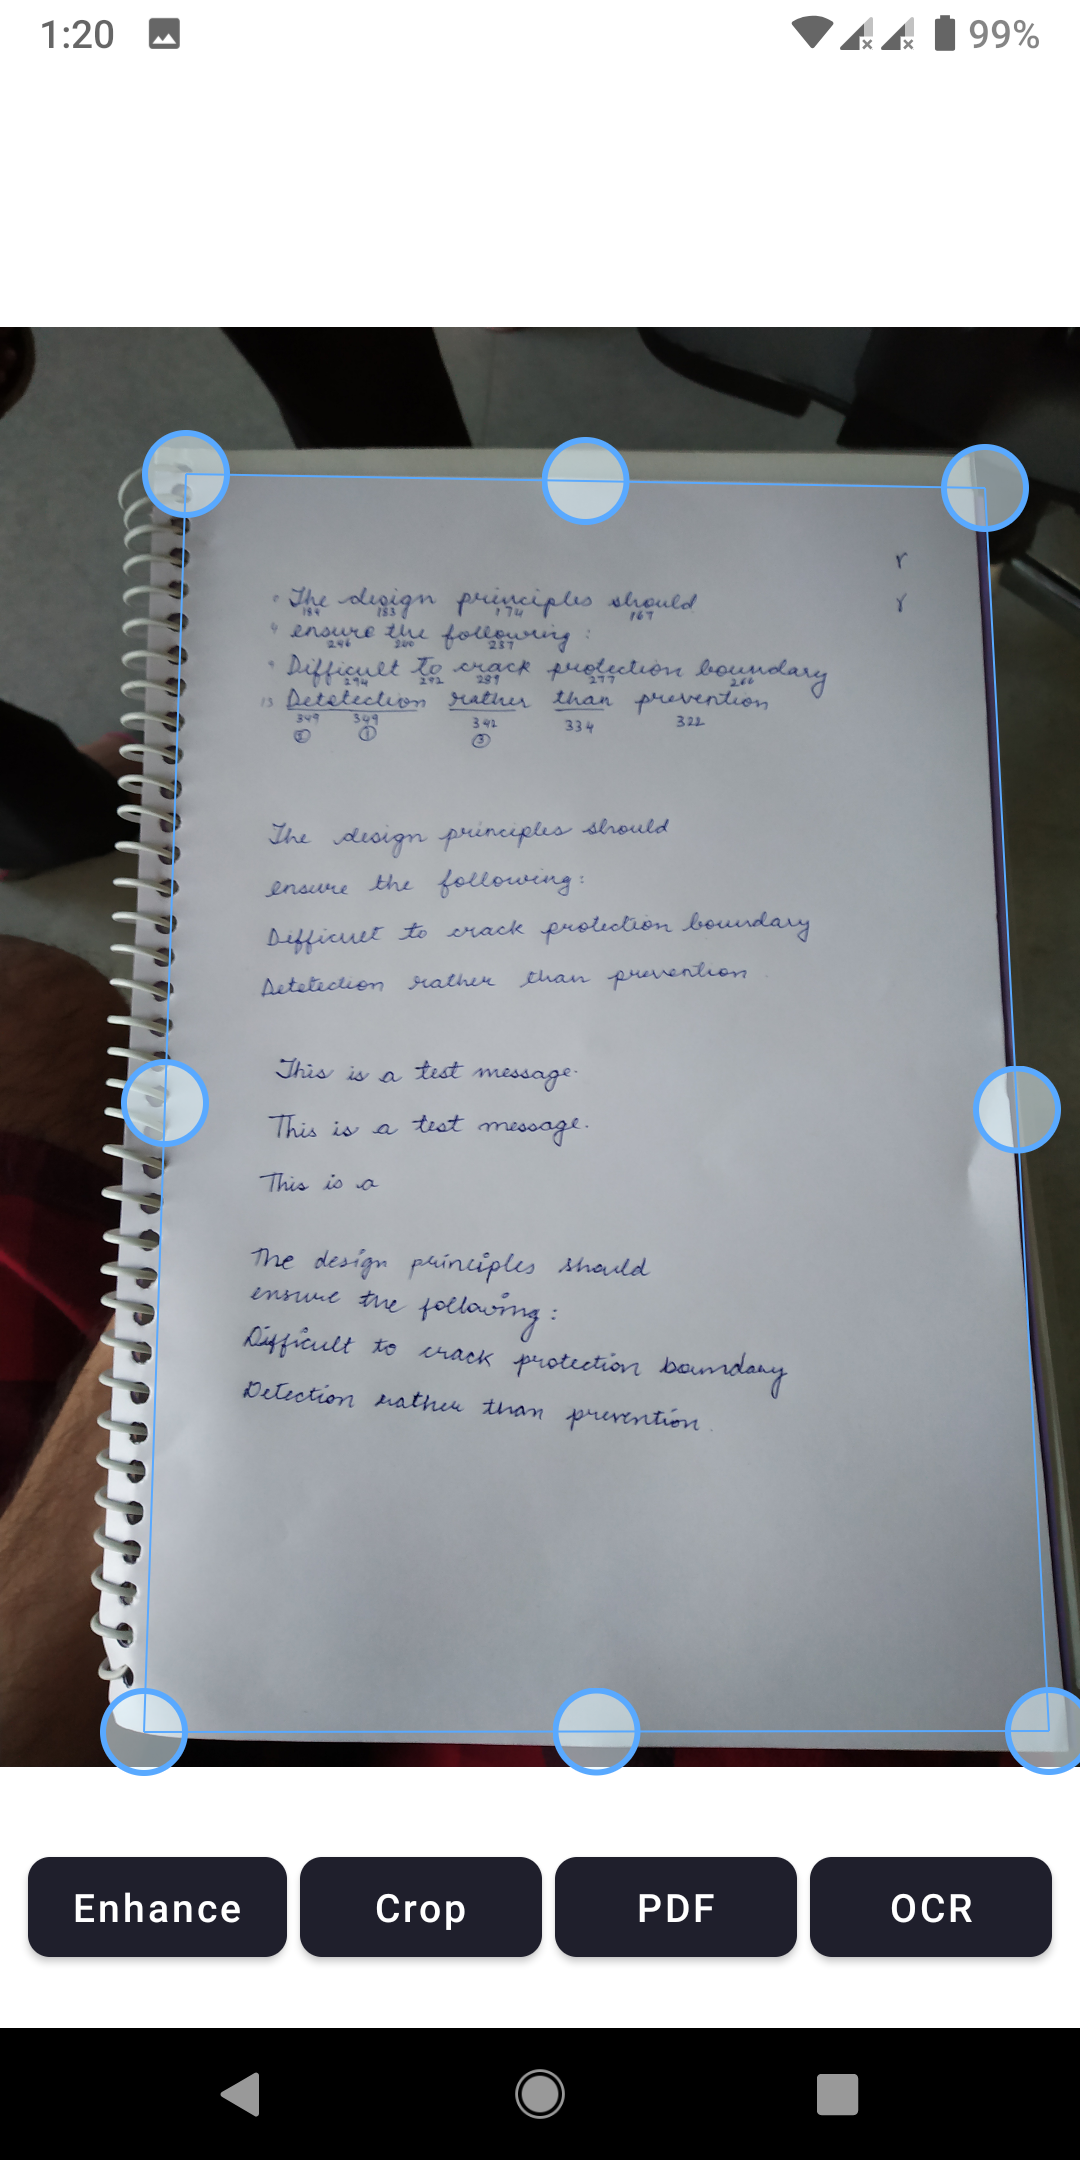 1:20 99%
r
0 The design principles should
184 183 174 167
r
4 ensure the following:
246 240 237
9 Difficult to crack protection boundary
294 292 289 277 266
13 Detetection rather than prevention
349 349 342 334 322
2 1 3
The design principles should
ensure the following:
Difficult to crack protection boundary
Detetection rather than prevention
This is a test message.
This is a test message.
This is a
The design principles should
ensure the following:
Difficult to crack protection boundary
Detection rather than prevention.
Enhance Crop PDF OCR